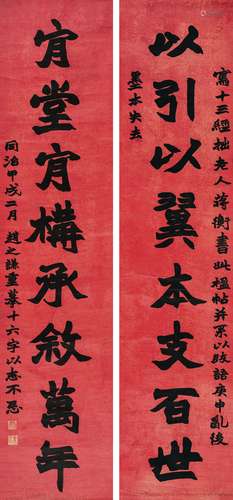 寫十三經拙老人蔣衡書此楹帖并系以跋語庚申亂後
以引以翼本支百世
墨本失去
肎堂肎構承敘萬年
同治甲戌二月趙之謙重摹十六字以志不忘